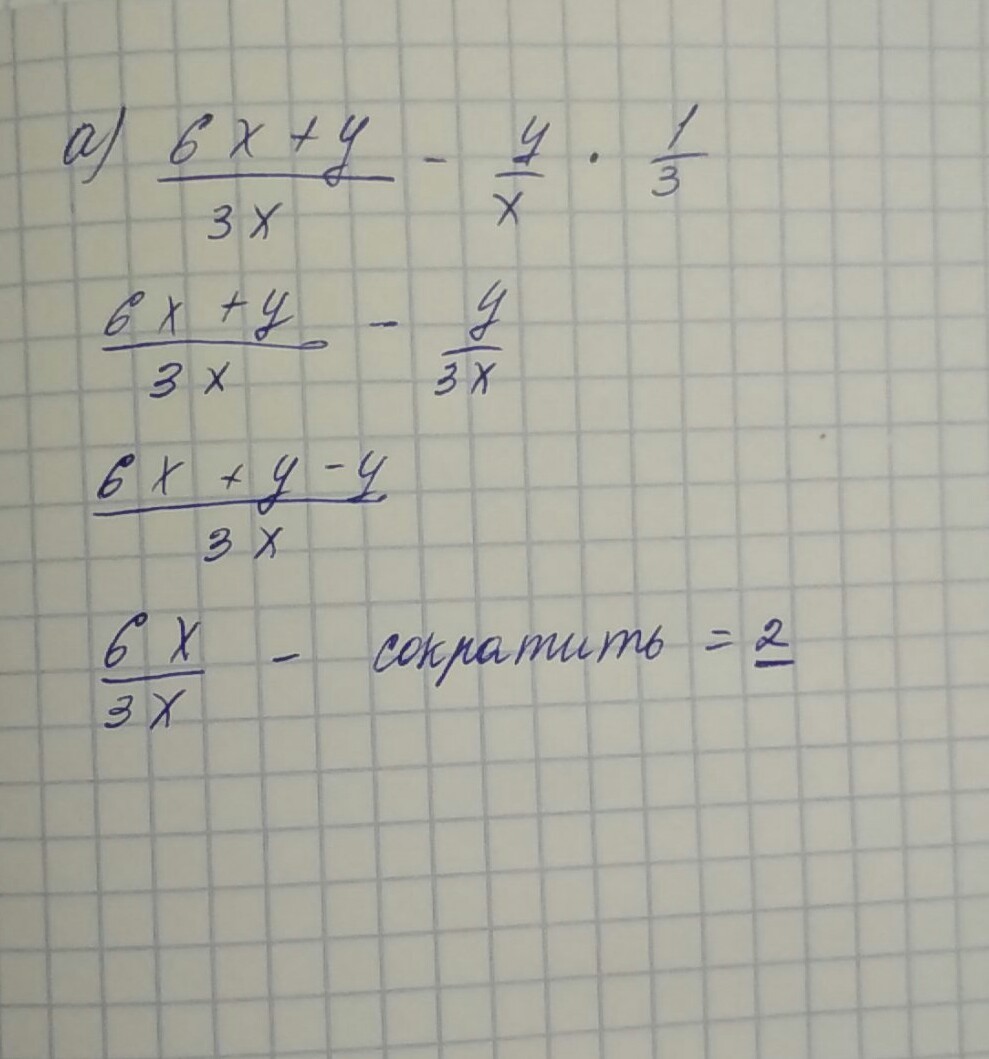 а) (6x + y)/(3x) - y/x · 1/3
(6x + y)/(3x) - y/(3x)
(6x + y - y)/(3x)
6x/(3x) - сократить = 2